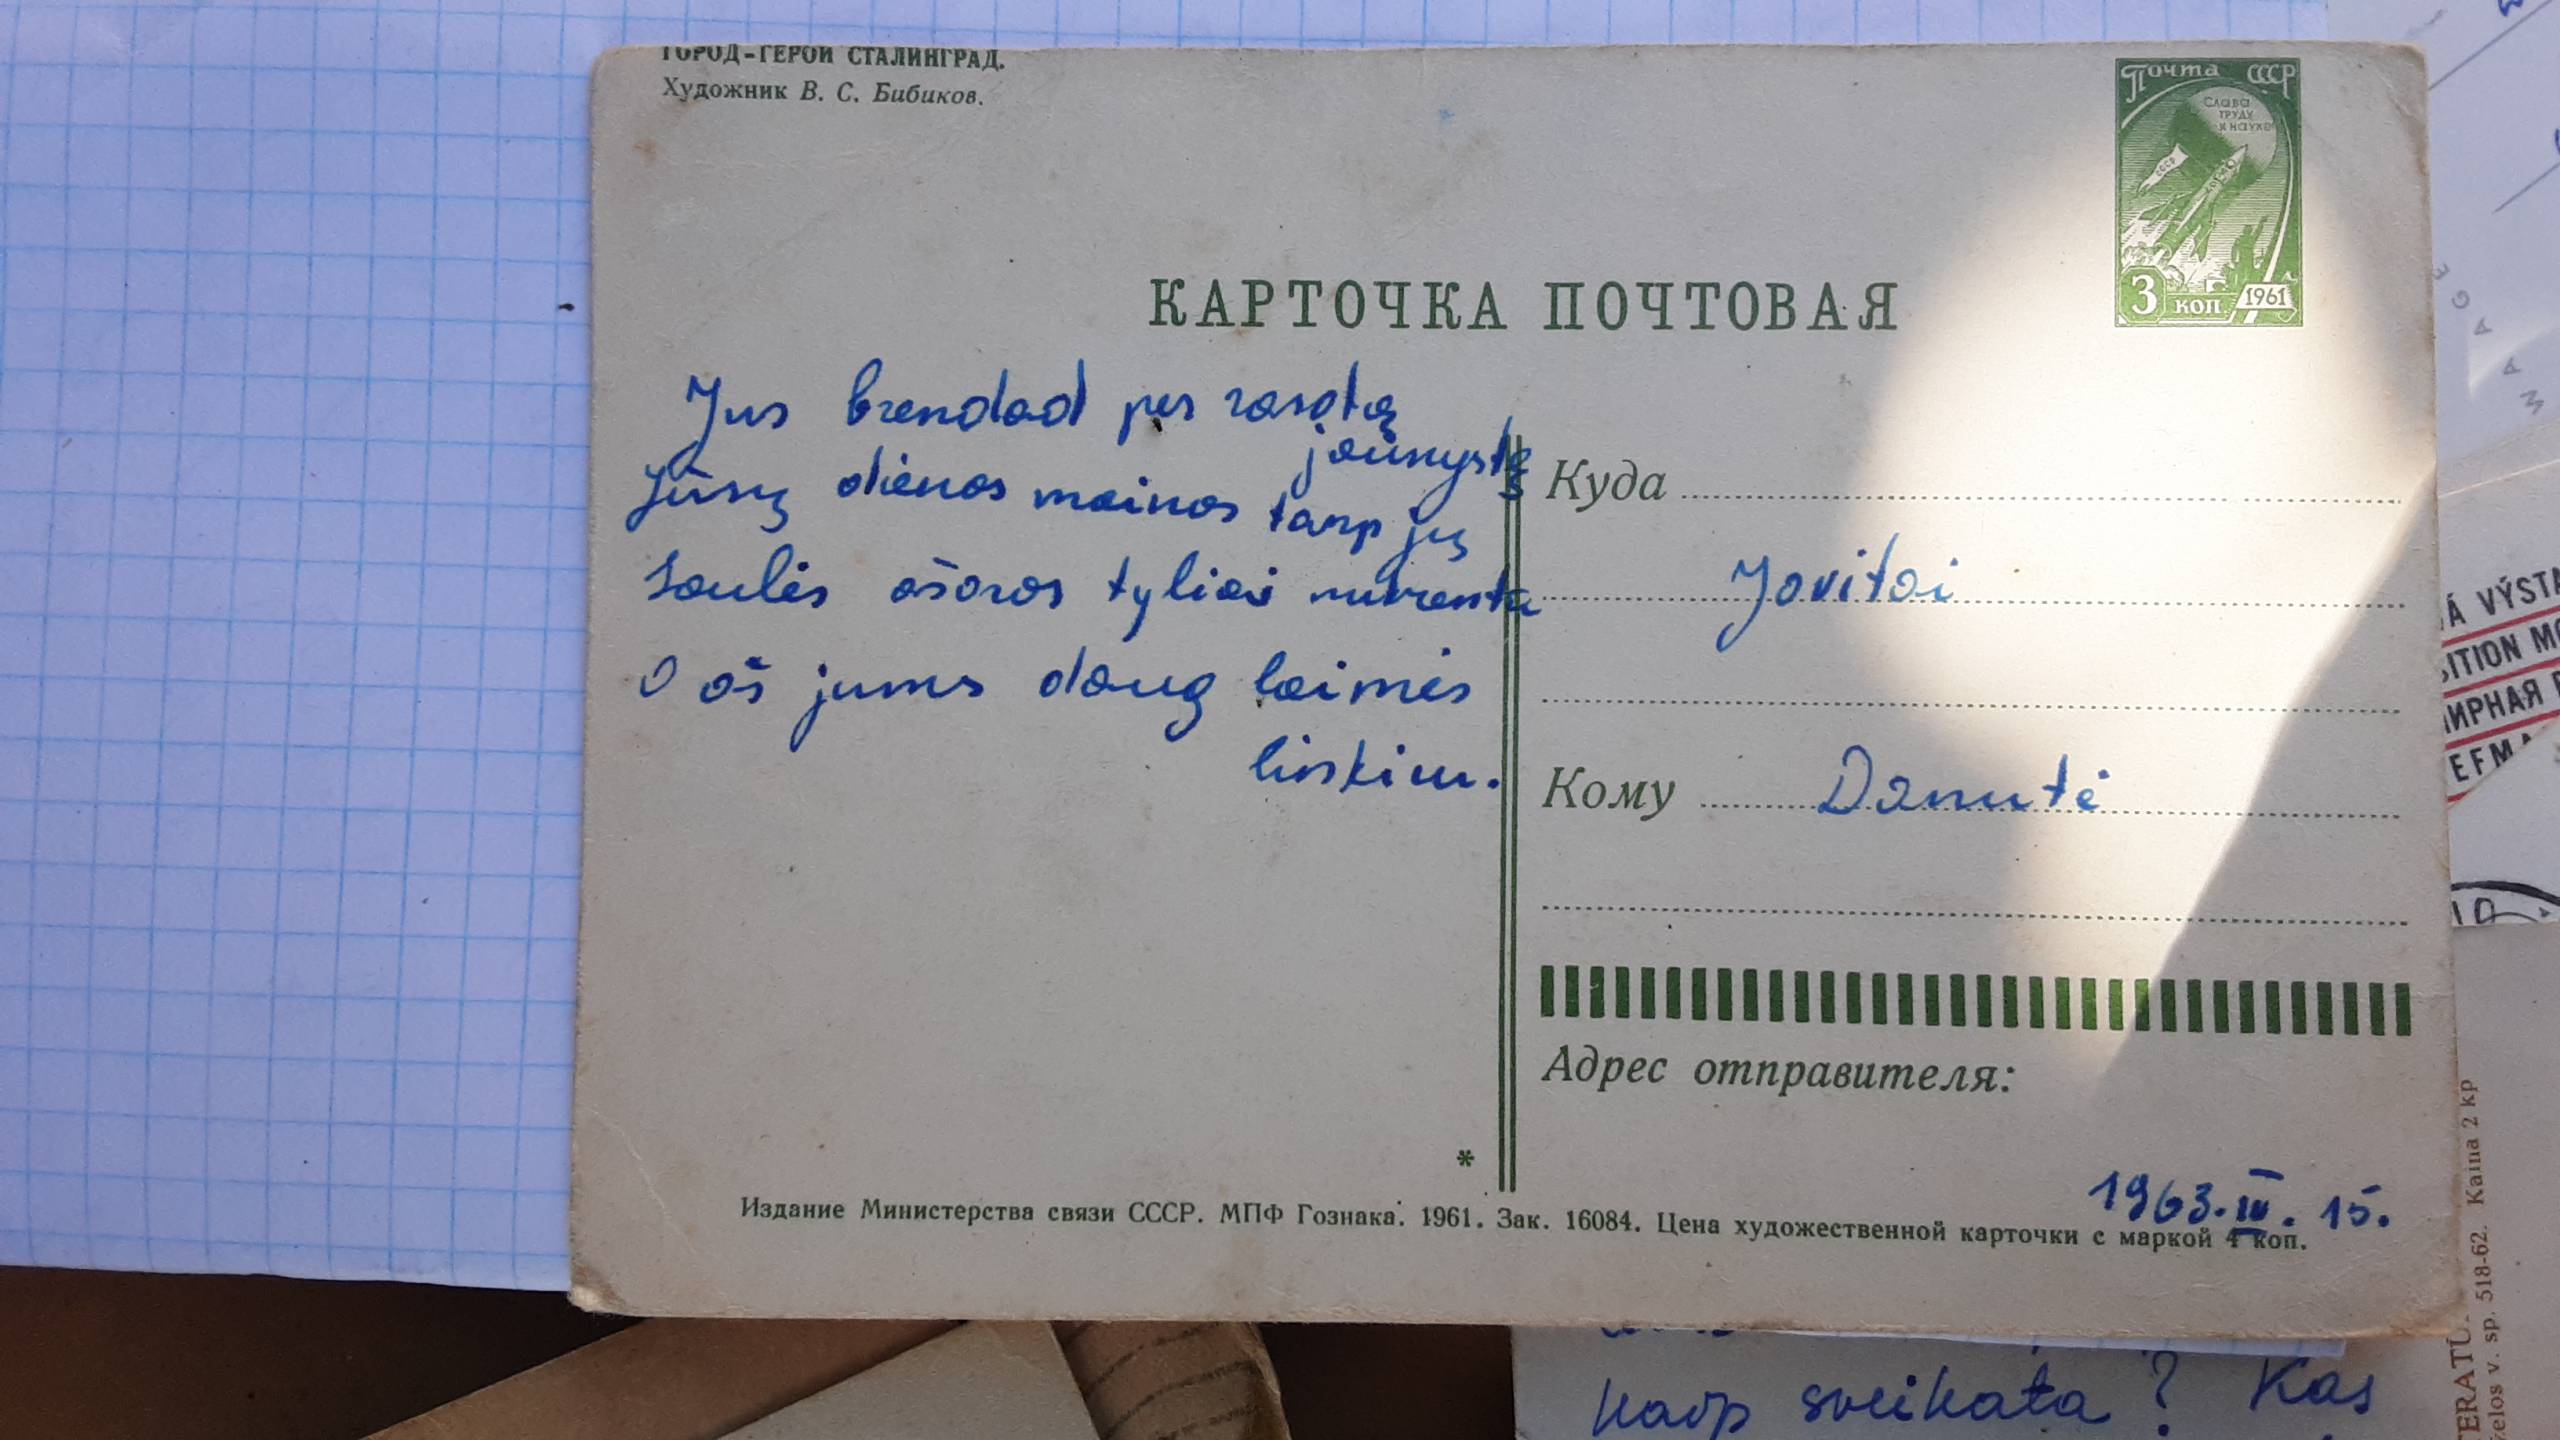 ГОРОД-ГЕРОЙ СТАЛИНГРАД.
Художник В. С. Бибиков.
Почта СССР
СЛАВА
ТРУДУ
И НАУКЕ
СССР
3 коп. 1961
КАРТОЧКА ПОЧТОВАЯ
Jus brendad per rasotą
jaūnystę
Jūsų dienos mainos tarp jų
Saulės ašaros tyliai nukrenta
O aš jums daug laimės
linskiu.
Куда
Jovitai
Кому Danutė
Адрес отправителя:
1963.III.15.
*
Издание Министерства связи СССР. МПФ Гознака. 1961. Зак. 16084. Цена художественной карточки с маркой 4 коп.
Á VÝSTA
SITION MO
ИРНАЯ
EFMA
TERATŪ
želos v. sp. 518-62. Kaina 2 kp
kaip sveikata? Kas